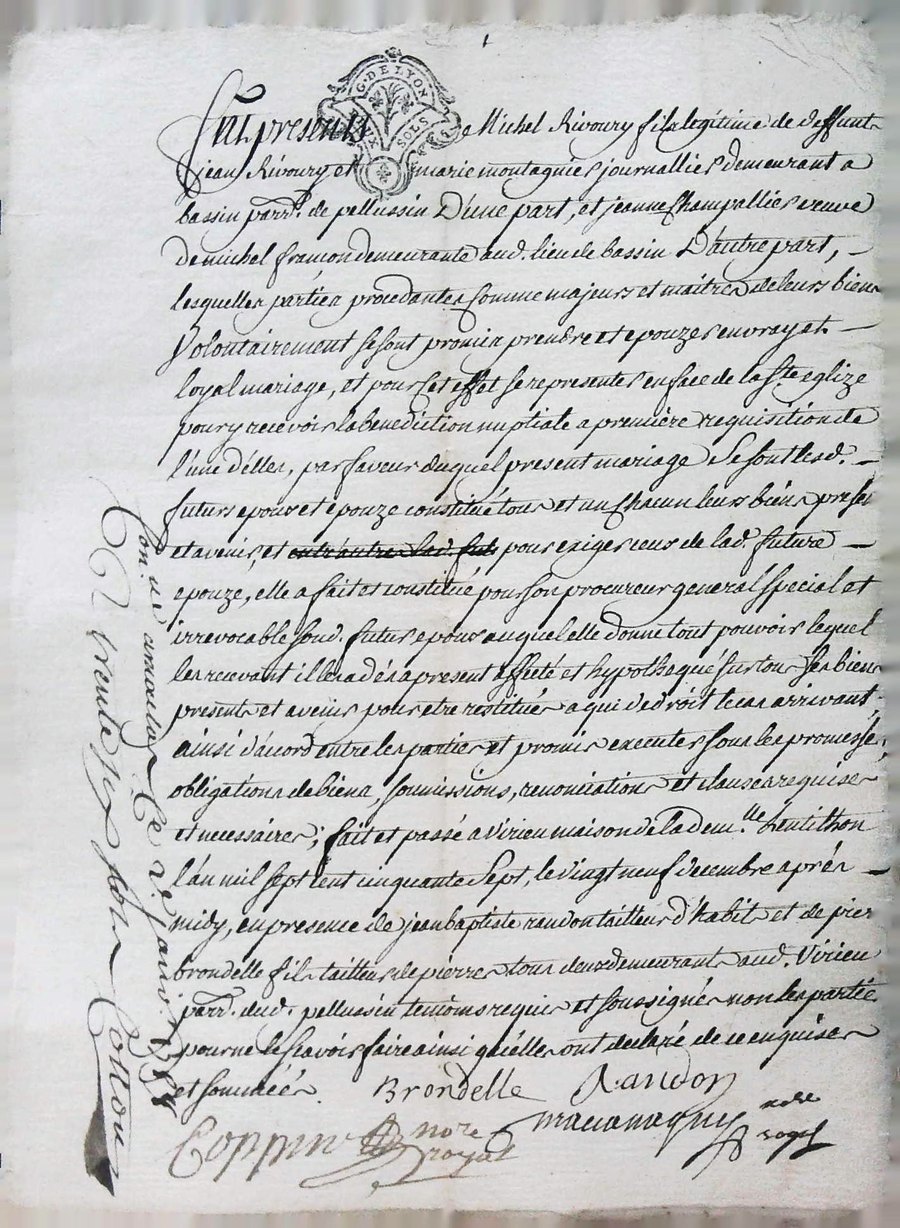 G. DE LYON
SOLS
Fut presents Michel Rivoury fils legitime de deffunt
jean Rivoury et marie montagnier journallier demeurant a
bassin parr. de pellussin D'une part, et jeanne Champallier veuve
de michel framon demeurante aud. lieu de bassin D'autre part,
lesquelles parties procedantes comme majeurs et maitres de leurs biens
Volontairement se sont promis prendre et epouzer en vray et
loyal mariage, et pour cet effet se representer en face de la Ste eglize
pour y recevoir la benediction nuptiale a premiere requisition de
l'une d'elles, par faveur duquel present mariage se sont lesd.
futurs epoux et epouze constitué tous et un chacun leurs biens presen
et avenir, et entr'autre lad. fut pour exiger ceux de lad. future
epouze, elle a fait et constitué pour son procureur general special et
irrevocable sond. futur epoux auquel elle donne tout pouvoir lequel
les recevant il les a dés a present affecté et hypothequé sur tous ses biens
presents et avenir pour etre restitués a qui de droit le cas arrivant
ainsi d'acord entre les parties et promis executer sous les promesses,
obligations de biens, soumissions, renonciations et clauses requises
et necessaires; fait et passé a virieu maison de la dem.lle Lentithon
l'an mil sept cent cinquante sept, le vingt neuf decembre aprés
midy, en presence de jean baptiste randon tailleur d'habit et de pier
brondelle fils tailleur de pierres tous deux demeurant aud. Virieu
parr. dud. pellussin temoins requis et soussignés non les parties
pour ne le sçavoir faire ainsi qu'elles ont declaré de ce enquises
et sommées.
Brondelle Randon
Coppin nore
royal
notre
royal
Con. le 2e janv. 1758
trente six sols
Cotton